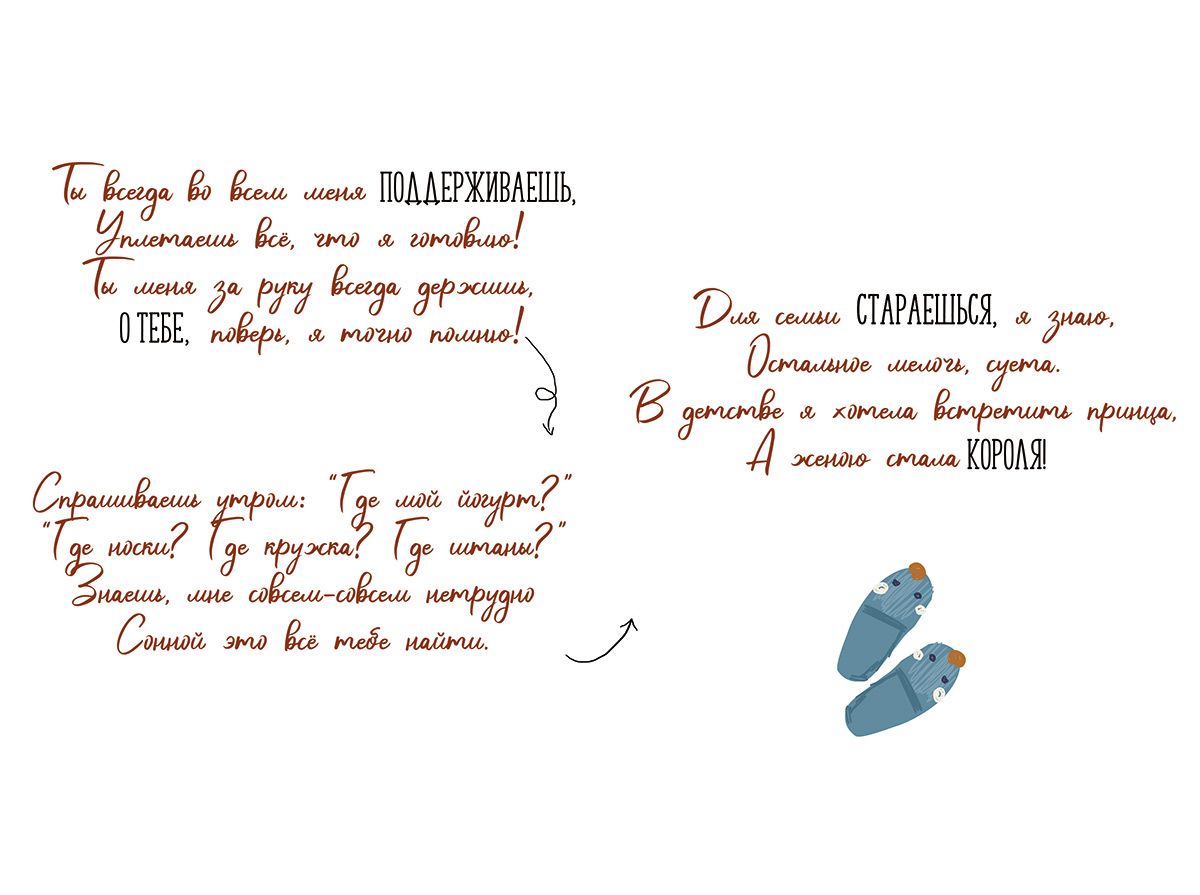 Ты всегда во всем меня ПОДДЕРЖИВАЕШЬ,
Уплетаешь всё, что я готовлю!
Ты меня за руку всегда держишь,
О ТЕБЕ, поверь, я точно помню!
Спрашиваешь утром: “Где мой йогурт?”
“Где носки? Где кружка? Где штаны?”
Знаешь, мне совсем-совсем нетрудно
Сонной это всё тебе найти.
Для семьи СТАРАЕШЬСЯ, я знаю,
Остальное мелочь, суета.
В детстве я хотела встретить принца,
А женою стала КОРОЛЯ!